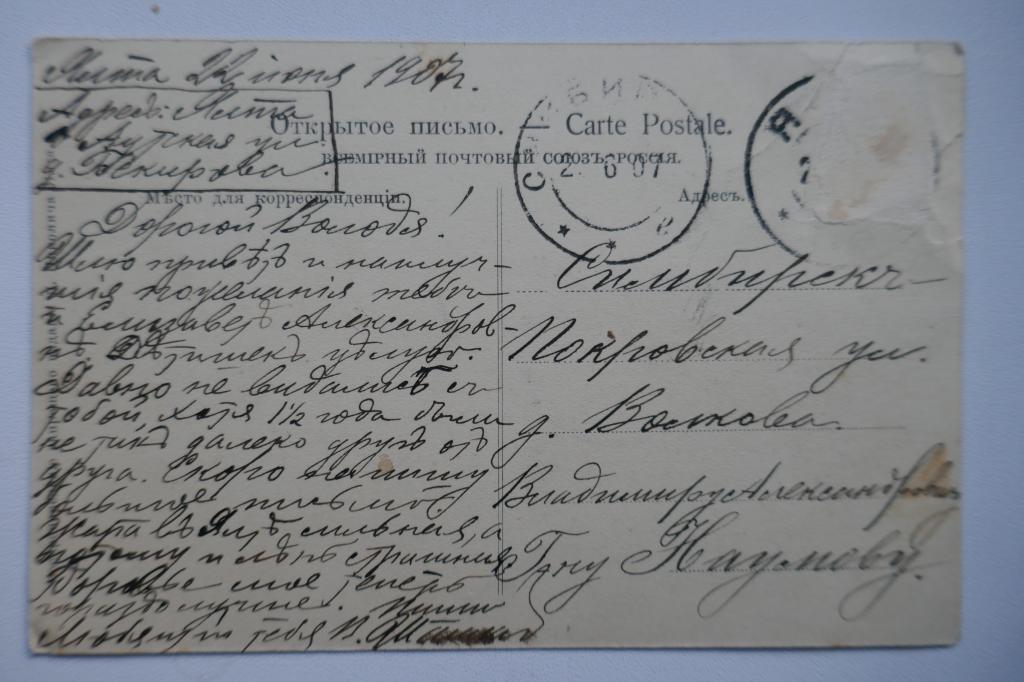 Ялта 22 июня 1907 г.
Адресъ: Ялта
Аутская ул.
д. Бекирова.
Открытое письмо. — Carte Postale.
ВСЕМІРНЫЙ ПОЧТОВЫЙ СОЮЗЪ. РОССІЯ.
Мѣсто для корреспонденціи.
Адресъ.
6 07
Дорогой Володя!
Шлю привѣтъ и наилуч-
шія пожеланія тебѣ
и Елизаветѣ Александров-
нѣ. Дѣтишекъ цѣлую.
Давно не видались съ
тобой, хотя 1½ года были
не такъ далеко другъ отъ
друга. Скоро напишу
большое письмо.
Жара въ Ялтѣ сильная, а
потому и лѣнь страшная.
Здоровье мое теперь
гораздо лучше. Пиши
Любящій тебя В.
Симбирскъ
Покровская ул.
д. Волкова.
Владимиру Александровичу
Г-ну Наумову.